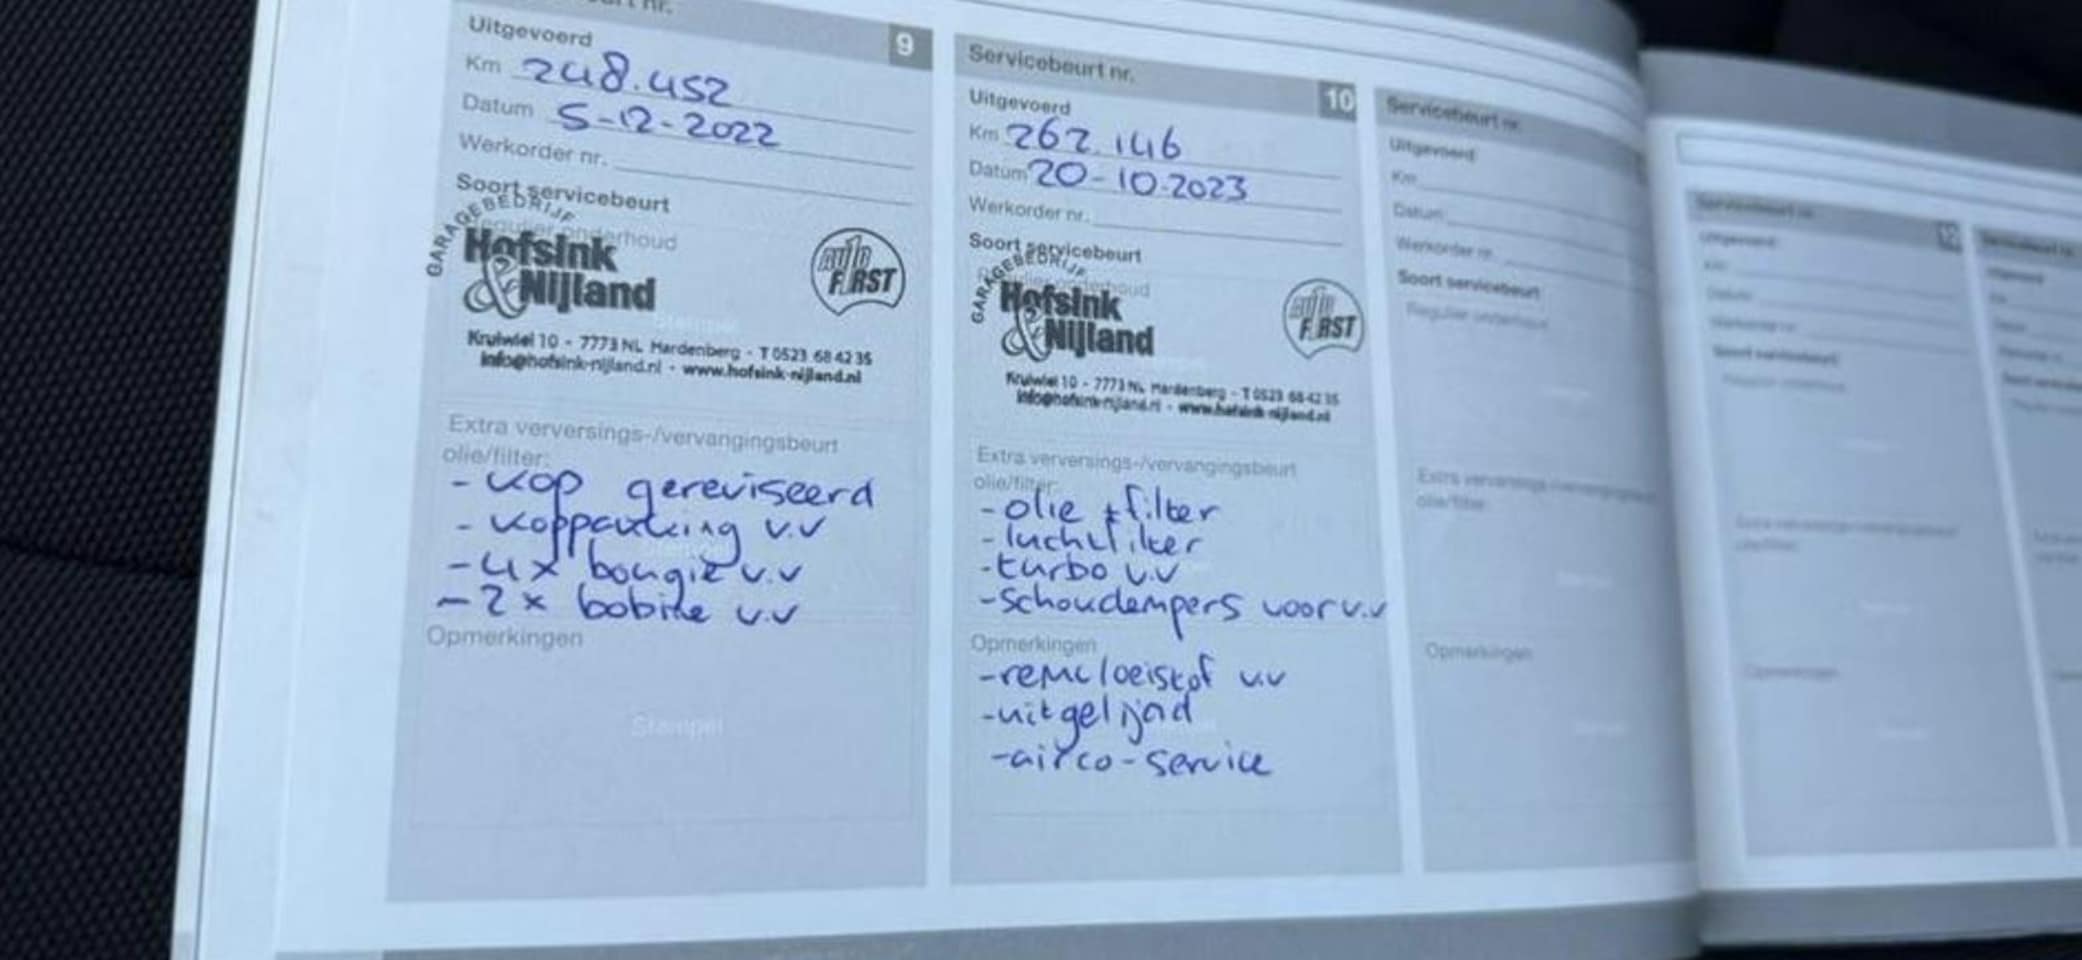 Uitgevoerd 9
Km 248.452
Datum 5-12-2022
Werkorder nr.
Soort servicebeurt
GARAGEBEDRIJF
Hofsink
& Nijland
FIRST
Kruiwiel 10 - 7773 NL Hardenberg - T 0523 68 42 35
info@hofsink-nijland.nl - www.hofsink-nijland.nl
Extra verversings-/vervangingsbeurt
olie/filter:
- kop gereviseerd
- koppakking v.v
- 4x bougie v.v
- 2x bobine v.v
Opmerkingen
Stempel
Servicebeurt nr. 10
Uitgevoerd
Km 262.146
Datum 20-10-2023
Werkorder nr.
Soort servicebeurt
GARAGEBEDRIJF
Hofsink
& Nijland
FIRST
Kruiwiel 10 - 7773 NL Hardenberg - T 0523 68 42 35
info@hofsink-nijland.nl - www.hofsink-nijland.nl
Extra verversings-/vervangingsbeurt
olie/filter:
- olie + filter
- luchtfilter
- turbo v.v
- schokdempers voor v.v
Opmerkingen
- remvloeistof v.v
- uitgelijnd
- airco-service
Servicebeurt nr.
Uitgevoerd
Km
Datum
Werkorder nr.
Soort servicebeurt
Regulier onderhoud
Extra verversings-/vervangingsbeurt
olie/filter:
Opmerkingen
Servicebeurt nr. 12
Uitgevoerd
Km
Datum
Werkorder nr.
Soort servicebeurt
Opmerkingen